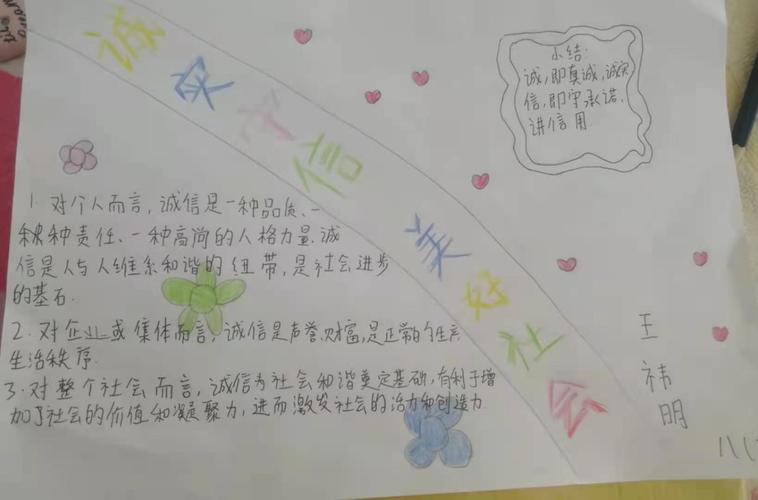 诚实守信
美好社会
小结:
诚,即真诚,诚实
信,即守承诺,
讲信用
1. 对个人而言,诚信是一种品质、一
种责任、一种高尚的人格力量.诚
信是人与人维系和谐的纽带,是社会进步
的基石.
2. 对企业或集体而言,诚信是声誉,财富,是正常的生产
生活秩序.
3. 对整个社会而言,诚信为社会和谐奠定基础,有利于增
加了社会的价值和凝聚力,进而激发社会的活力和创造力
王
祎
明